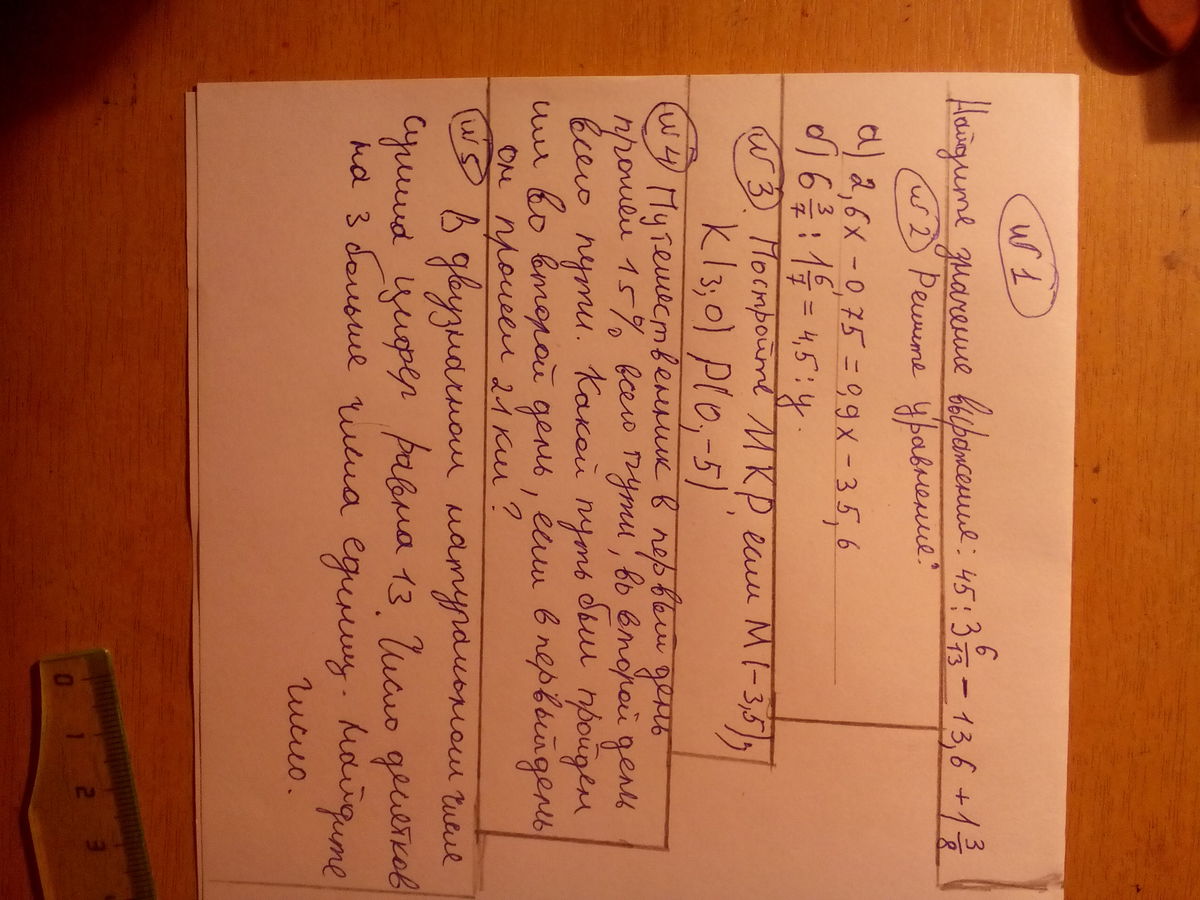 №1
Найдите значение выражения: 45 : 3 6/13 - 13,6 + 1 3/8
№2 Решите уравнение:
а) 2,6x - 0,75 = 0,9x - 35,6
б) 6 3/7 : 1 6/7 = 4,5 : y.
№3. Постройте МКР, если М(-3,5);
К(3,0) Р(0,-5)
№4 Путешественник в первый день
прошел 15% всего пути, во второй день
всего пути. Какой путь был пройден
им во второй день, если в первый день
он прошел 21 км?
№5 В двузначном натуральном числе
сумма цифер равна 13. Число десятков
на 3 больше числа единиц. Найдите
число.
0 1 2 3